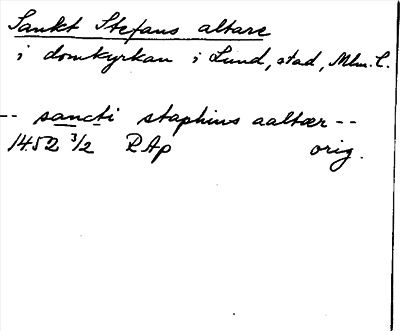 Sankt Stefans altare
i domkyrkan i Lund, stad, Mlm. l.
-- sancti staphins aaltær --
1452 3/2 RAp orig.